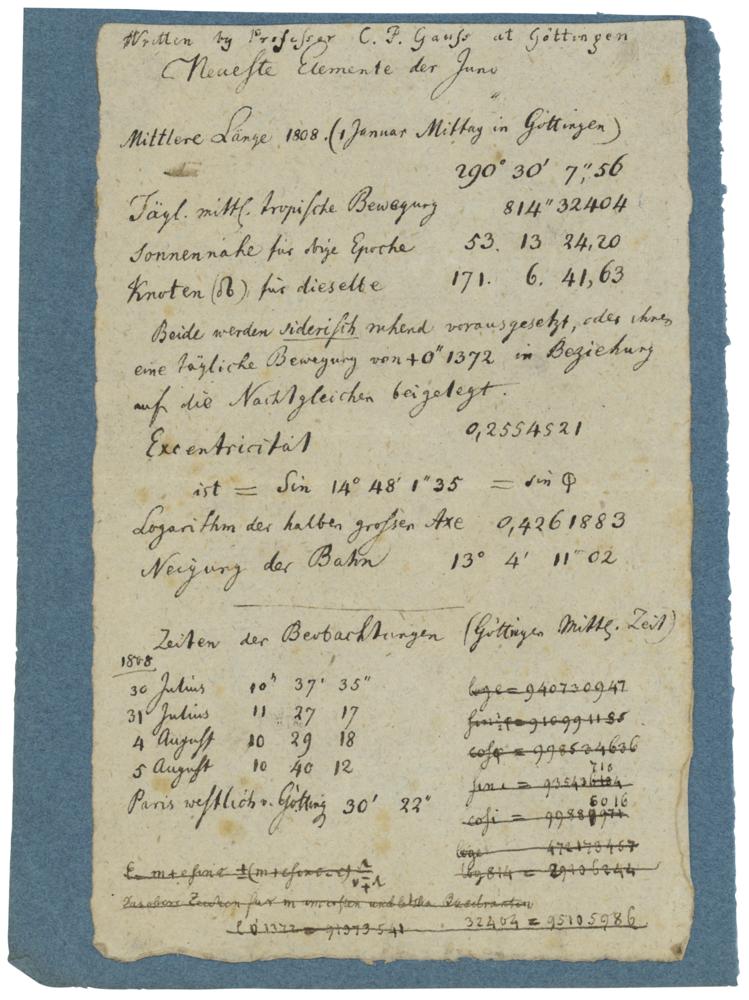 Written by Professor C. F. Gauss at Göttingen
Neueste Elemente der Juno
Mittlere Länge 1808. (1 Januar Mittag in Göttingen)
290° 30' 7",56
Tägl. mittl. tropische Bewegung 814"32404
Sonnennähe für obige Epoche 53. 13 24,20
Knoten (☊) für dieselbe 171. 6. 41,63
Beide werden siderisch ruhend vorausgesetzt, oder ihnen
eine tägliche Bewegung von +0"1372 in Beziehung
auf die Nachtgleichen beigelegt.
Excentricität 0,2554521
ist = Sin 14° 48' 1"35 = sin φ
Logarithm der halben grossen Axe 0,4261883
Neigung der Bahn 13° 4' 11"02
Zeiten der Beobachtungen (Göttingen Mittl. Zeit)
1808
30 Julius 10h 37' 35"
31 Julius 11 27 17
4 August 10 29 18
5 August 10 40 12
Paris westlich v. Götting 30' 22"
log e = 940730947
cosφ = 998534636
sin i =
cos i =
log 814 =
32404 = 95105986